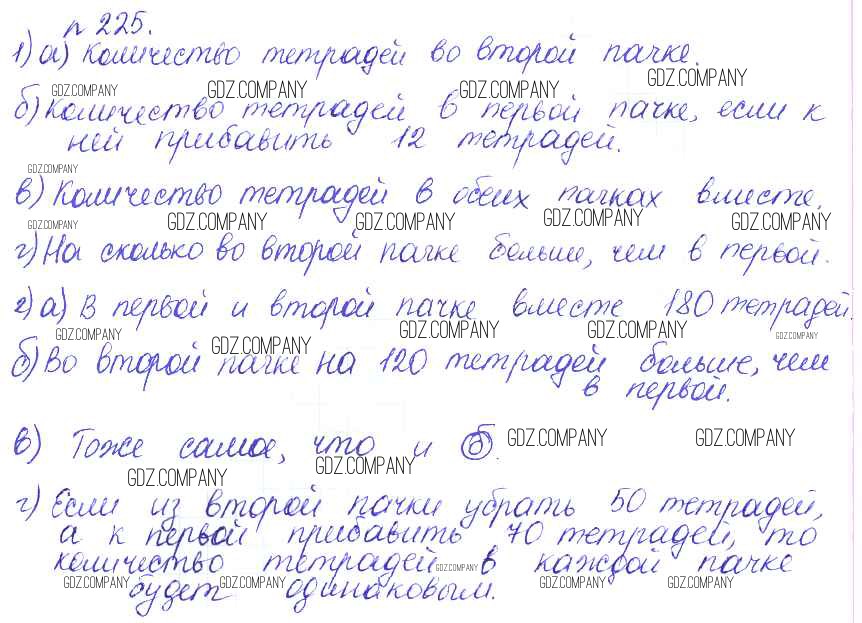 n 225.
1) а) Количество тетрадей во второй пачке.
GDZ.COMPANY GDZ.COMPANY GDZ.COMPANY GDZ.COMPANY
б) Количество тетрадей в первой пачке, если к
ней прибавить 12 тетрадей.
GDZ.COMPANY
в) Количество тетрадей в обеих пачках вместе.
GDZ.COMPANY GDZ.COMPANY GDZ.COMPANY GDZ.COMPANY GDZ.COMPANY
г) На сколько во второй пачке больше, чем в первой.
2) а) В первой и второй пачке вместе 180 тетрадей.
GDZ.COMPANY GDZ.COMPANY GDZ.COMPANY GDZ.COMPANY GDZ.COMPANY
б) Во второй пачке на 120 тетрадей больше, чем
в первой.
в) Тоже самое, что и б.
GDZ.COMPANY GDZ.COMPANY GDZ.COMPANY GDZ.COMPANY
г) Если из второй пачки убрать 50 тетрадей,
а к первой прибавить 70 тетрадей, то
количество тетрадей в каждой пачке
GDZ.COMPANY GDZ.COMPANY GDZ.COMPANY GDZ.COMPANY GDZ.COMPANY
будет одинаковым.